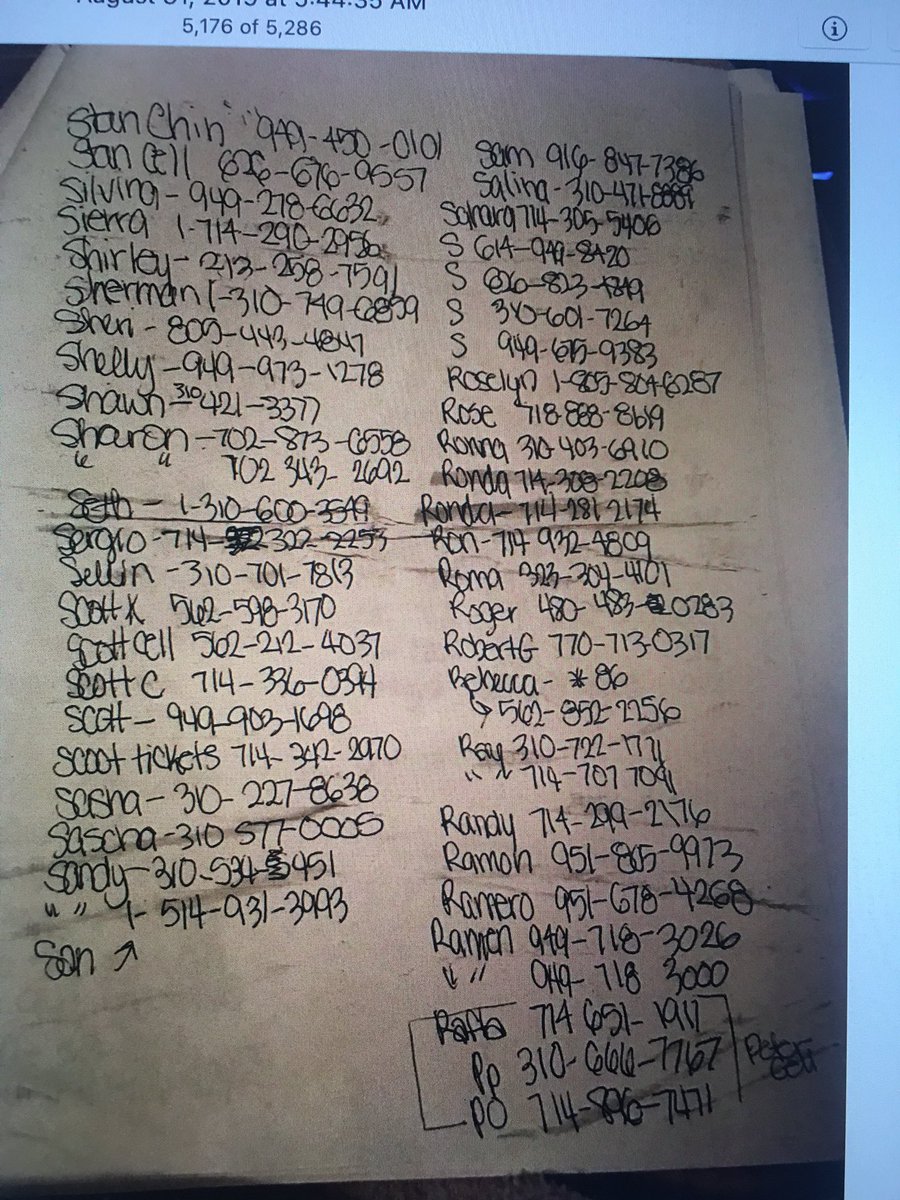 August 31, 2015 at 5:44:35 AM
5,176 of 5,286
Stan Chin 949-450-0101
San Cell 626-676-9557
Silvina - 949-278-6632
Sierra 1-714-290-2956
Shirley - 213-258-7591
Sherman 1-310-749-6859
Sheri - 805-443-4847
Shelly - 949-973-1278
Shawn - 310 421-3377
Sharon - 702-873-6558
" " 702 343-2692
Seth - 1-310-600-3549
Sergio - 714- 322-2253
Sellin - 310-701-7813
Scott K 562-598-3170
Scott Cell 562-212-4037
Scott C 714-336-0394
Scott - 949-903-1698
Scoot tickets 714-342-2970
Sasha - 310-227-8638
Sascha - 310 577-0005
Sandy - 310-534-5451
" " 1-514-931-3993
San ↗
Sam 916-847-7386
Salina - 310-471-8889
Sahara 714-305-5406
S 614-949-8420
S 626-823-4849
S 310-601-7264
S 949-675-9383
Roselyn 1-805-804-6287
Rose 718-888-8619
Ronna 310-403-6910
Ronda 714-308-2208
Ronda - 714-281-2174
Ron - 714 932-4809
Roma 323-304-4101
Roger 480-483-0283
Robert G 770-713-0317
Rebecca - *86
↳ 562-852-2256
Ray 310-722-1771
" " 714-707 7091
Randy 714-299-2176
Ramon 951-805-9973
Ramero 951-678-4268
Ramen 949-718-3026
" " 949-718 3000
Rafla 714 651-1917
Pp 310-666-7767
PO 714-896-7471